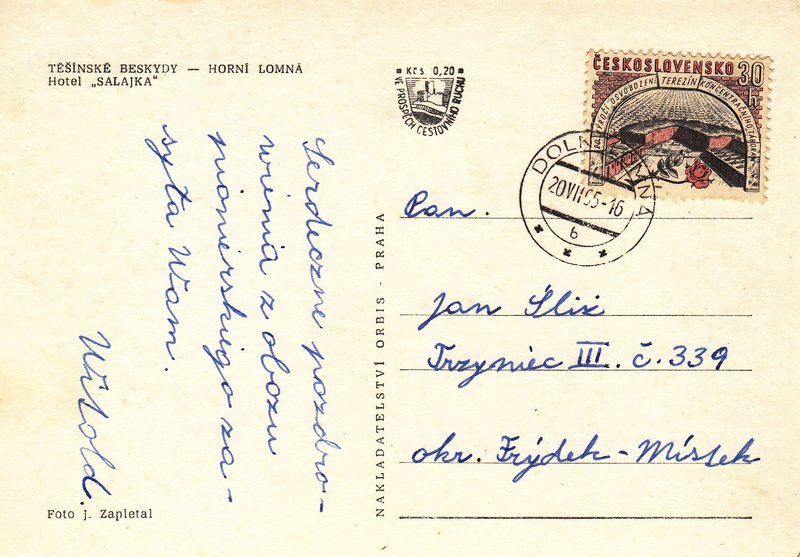 TĚŠÍNSKÉ BESKYDY — HORNÍ LOMNÁ
Hotel „SALAJKA"
Serdeczne pozdro-
wienia z obozu
pionierskiego za-
syła Wam.
Witold
Foto J. Zapletal
NAKLADATELSTVÍ ORBIS - PRAHA
Kčs 0,20
VE PROSPĚCH CESTOVNÍHO RUCHU
ČESKOSLOVENSKO 30 h
20. VÝROČÍ OSVOBOZENÍ TEREZÍN KONCENTRAČNÍHO TÁBORA
DOLNÍ LOMNÁ
20.VII.65-16
b
Pan.
Jan Śliż
Trzyniec III. č. 339
okr. Frýdek-Místek